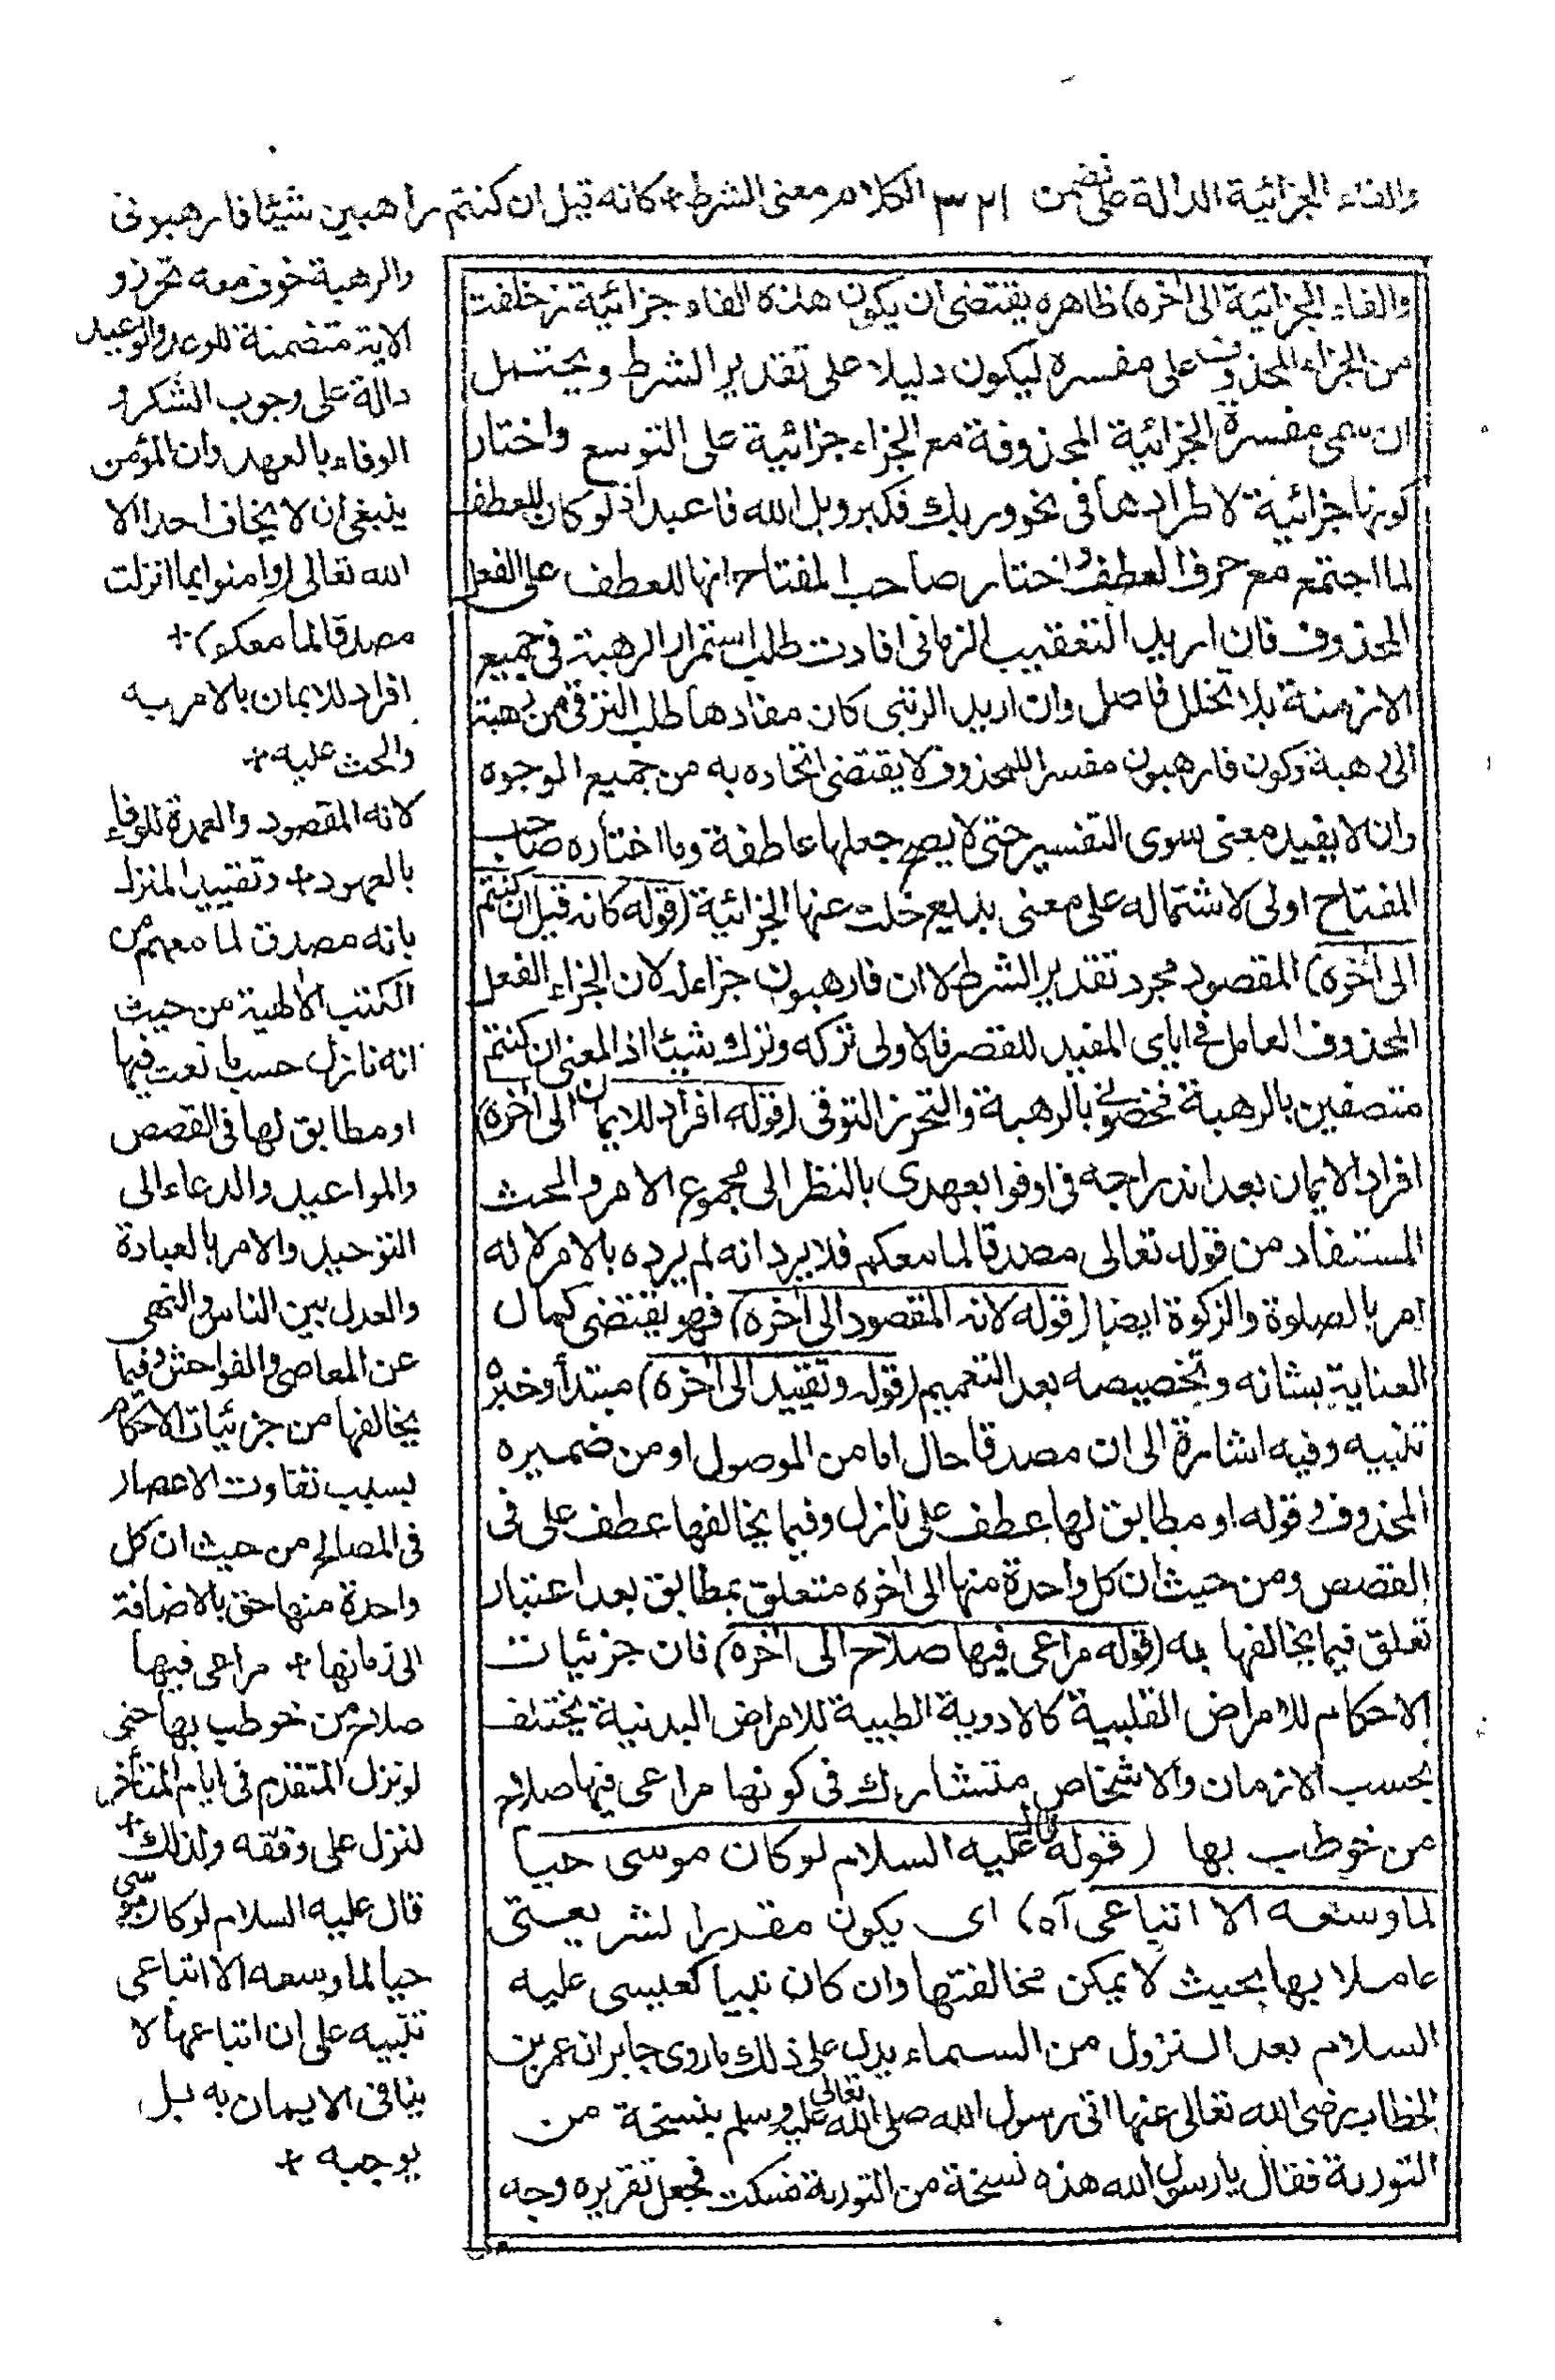 والفاء الجزائية الدالة على تضمن ٣٢١ الكلام معنى الشرط + كانه قيل ان كنتم راهبين شيئا فارهبونى
والرهبة خوف معه تحرز و
الاية متضمنة للوعد والوعيد
دالة على وجوب الشكر و
الوفاء بالعهد وان المؤمن
ينبغى ان لا يخاف احدا الا
الله تعالى (وامنوا بما انزلت
مصدقا لما معكم) +
افراد للايمان بالامر به
والحث عليه +
لانه المقصود والعمدة للوفاء
بالعهود + وتقييد المنزل
بانه مصدق لما معهم من
الكتب الالهية من حيث
انه نازل حسب ما نعت فيها
او مطابق لها فى القصص
والمواعيد والدعاء الى
التوحيد والامر بالعبادة
والعدل بين الناس والنهى
عن المعاصى والفواحش وفيما
يخالفها من جزئيات الاحكام
بسبب تفاوت الاعصار
فى المصالح من حيث ان كل
واحدة منها حق بالاضافة
الى زمانها + مراعى فيها
صلاح من خوطب بها حتى
لو نزل المتقدم فى ايام المتأخر
لنزل على وفقه ولذلك +
قال عليه السلام لو كان موسى
حيا لما وسعه الا اتباعى
تنبيه على ان اتباعها لا
ينافى الايمان به بل
يوجبه +
والفاء الجزائية الى اخره) ظاهره يقتضى ان يكون هذه الفاء جزائية زحلفت
من الجزاء المحذوف على مفسره ليكون دليلا على تقدير الشرط ويحتمل
ان سمى مفسرة الجزائية المحذوفة مع الجزاء جزائية على التوسع واختار
كونها جزائية لاطرادها فى نحو وربك فكبر وبل الله فاعبد اذ لو كان للعطف
لما اجتمع مع حرف العطف واختار صاحب المفتاح انها للعطف على الفعل
المحذوف فان اريد التعقيب الزمانى افادت طلب استمرار الرهبة فى جميع
الازمنة بلا تخلل فاصل وان اريد الرتبى كان مفادها طلب الترقى من رهبة
الى رهبة وكون فارهبون مفسرا للمحذوف لا يقتضى اتحاده به من جميع الوجوه
وان لا يفيد معنى سوى التفسير حتى لا يصح جعلها عاطفة وما اختاره صاحب
المفتاح اولى لاشتماله على معنى بديع خلت عنها الجزائية (قوله كانه قيل ان كنتم
الى اخره) المقصود مجرد تقدير الشرط لا ان فارهبون جزاءه لان الجزاء الفعل
المحذوف العامل فى اياى المفيد للقصر فالاولى تركه وترك شيئا اذ المعنى ان كنتم
متصفين بالرهبة فخصونى بالرهبة والتحرز التوقى (قوله افراد للايمان الى اخره)
افراد الايمان بعد اندراجه فى اوفوا بعهدى بالنظر الى مجموع الامر والحث
المستفاد من قوله تعالى مصدقا لما معكم فلا يرد انه لم يرده بالامر لانه
امر بالصلوة والزكوة ايضا (قوله لانه المقصود الى اخره) فهو يقتضى كمال
العناية بشانه وتخصيصه بعد التعميم (قوله وتقييد الى اخره) مبتدأ وخبره
تنبيه وفيه اشارة الى ان مصدقا حال اما من الموصول او من ضميره
المحذوف وقوله او مطابق لها عطف على نازل وفيما يخالفها عطف على فى
القصص ومن حيث ان كل واحدة منها الى اخره متعلق بمطابق بعد اعتبار
تعلق فيما يخالفها به (قوله مراعى فيها صلاح الى اخره) فان جزئيات
الاحكام للامراض القلبية كالادوية الطبية للامراض البدنية يختلف
بحسب الازمان والاشخاص متشارك فى كونها مراعى فيها صلاح
من خوطب بها (قوله قال عليه السلام لو كان موسى حيا
لما وسعه الا اتباعى آه) اى يكون مقدرا لشريعتى
عاملا بها بحيث لا يمكن مخالفتها وان كان نبيا كعيسى عليه
السلام بعد النزول من السماء يدل على ذلك ما روى جابر ان عمر بن
الخطاب رضى الله تعالى عنهما اتى رسول الله صلى الله تعالى عليه وسلم بنسخة من
التورىة فقال يا رسول الله هذه نسخة من التورىة فسكت فجعل تقريره وجه